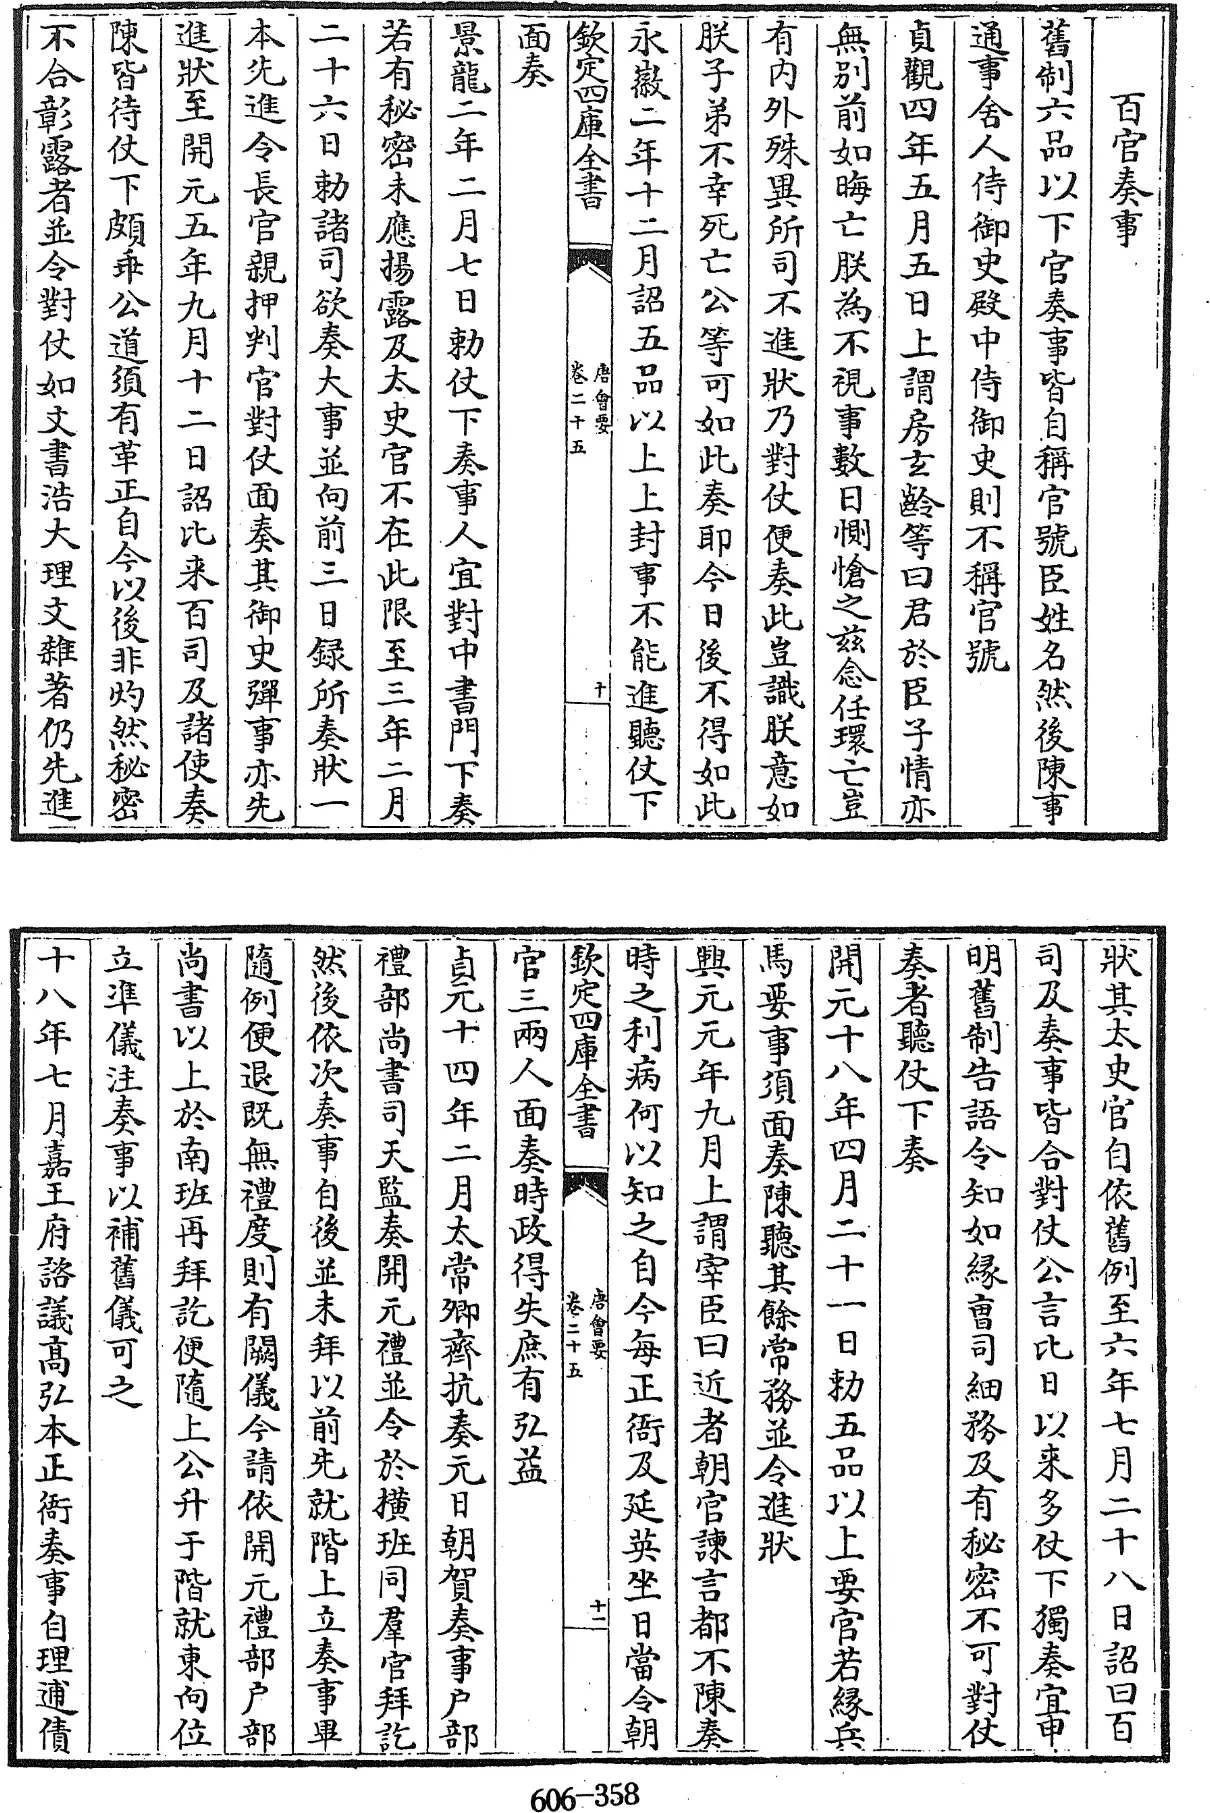 百官奏事
舊制六品以下官奏事皆自稱官號臣姓名然後陳事
通事舍人侍御史殿中侍御史則不稱官號
貞觀四年五月五日上謂房玄齡等曰君於臣子情亦
無別前如晦亡朕為不視事數日惻愴之兹念任瓌亡豈
有内外殊異所司不進狀乃對仗便奏此豈識朕意如
朕子弟不幸死亡公等可如此奏耶今日後不得如此
永徽二年十二月詔五品以上上封事不能進聽仗下
欽定四庫全書
唐會要
卷二十五
十
面奏
景龍二年二月七日勅仗下奏事人宜對中書門下奏
若有秘密未應揚露及太史官不在此限至三年二月
二十六日勅諸司欲奏大事並向前三日録所奏狀一
本先進令長官親押判官對仗面奏其御史彈事亦先
進狀至開元五年九月十二日詔比来百司及諸使奏
陳皆待仗下頗乖公道須有革正自今以後非灼然秘密
不合彰露者並令對仗如文書浩大理文雜著仍先進
狀其太史官自依舊例至六年七月二十八日詔曰百
司及奏事皆合對仗公言比日以来多仗下獨奏宜申
明舊制告語令知如縁曹司細務及有秘密不可對仗
奏者聽仗下奏
開元十八年四月二十一日勅五品以上要官若縁兵
馬要事須面奏陳聽其餘常務並令進狀
興元元年九月上謂宰臣曰近者朝官諫言都不陳奏
時之利病何以知之自今每正衙及延英坐日當令朝
欽定四庫全書
唐會要
卷二十五
十一
官三兩人面奏時政得失庶有弘益
貞元十四年二月太常卿齊抗奏元日朝賀奏事户部
禮部尚書司天監奏開元禮並令於横班同羣官拜訖
然後依次奏事自後並未拜以前先就階上立奏事畢
隨例便退既無禮度則有闕儀今請依開元禮部户部
尚書以上於南班再拜訖便隨上公升于階就東向位
立準儀注奏事以補舊儀可之
十八年七月嘉王府諮議高弘本正衙奏事自理逋債
606-358